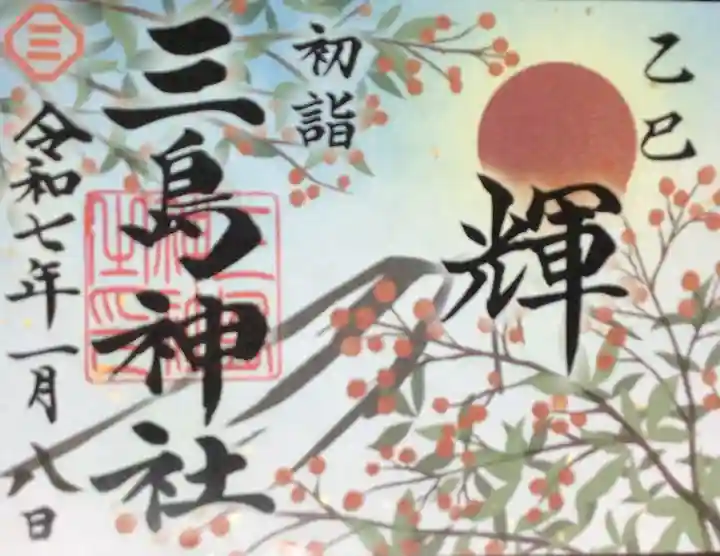 乙巳
輝
初詣
三島神社
三
令和七年一月八日